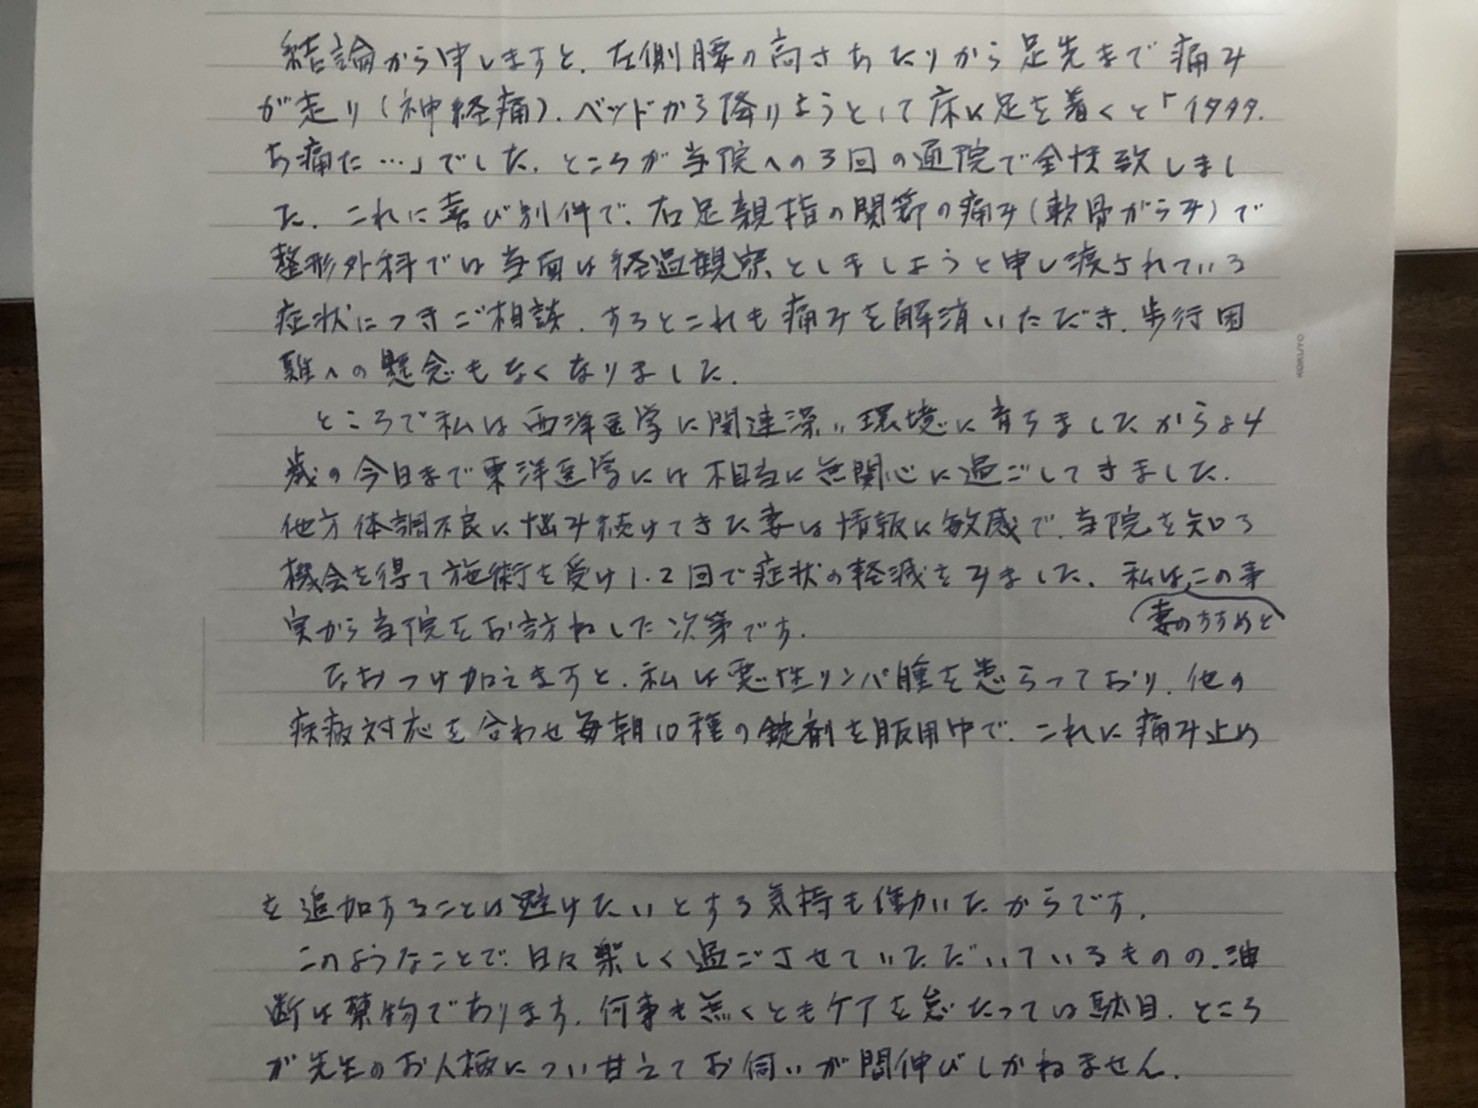 結論から申しますと、左側腰の高さあたりから足先まで痛み
が走り(神経痛)、ベッドから降りようとして床に足を着くと「イタタタ、
あ痛た…」でした。ところが当院への3回の通院で全快致しまし
た。これに喜び別件で、右足親指の関節の痛み(軟骨がらみ)で
整形外科では当面は経過観察としましょうと申し渡されている
症状につきご相談。するとこれも痛みを解消いただき、歩行困
難への懸念もなくなりました。
ところで私は西洋医学に関連深い環境に育ちましたから84
歳の今日まで東洋医学には相当に無関心に過ごしてきました。
他方体調不良に悩み続けてきた妻は情報に敏感で、当院を知る
機会を得て施術を受け1.2回で症状の軽減をみました。私は、この事
妻のすすめと
実から当院をお訪ねした次第です。
なおつけ加えますと、私は悪性リンパ腫を患らっており、他の
疾病対応を合わせ毎朝10種の錠剤を服用中で、これに痛み止め
を追加することは避けたいとする気持も働いたからです。
このようなことで、日々楽しく過ごさせていただいているものの、油
断は禁物であります。何事も無くともケアを怠たっては駄目。ところ
が先生のお人柄につい甘えてお伺いが間伸びしかねません。
KOKUYO